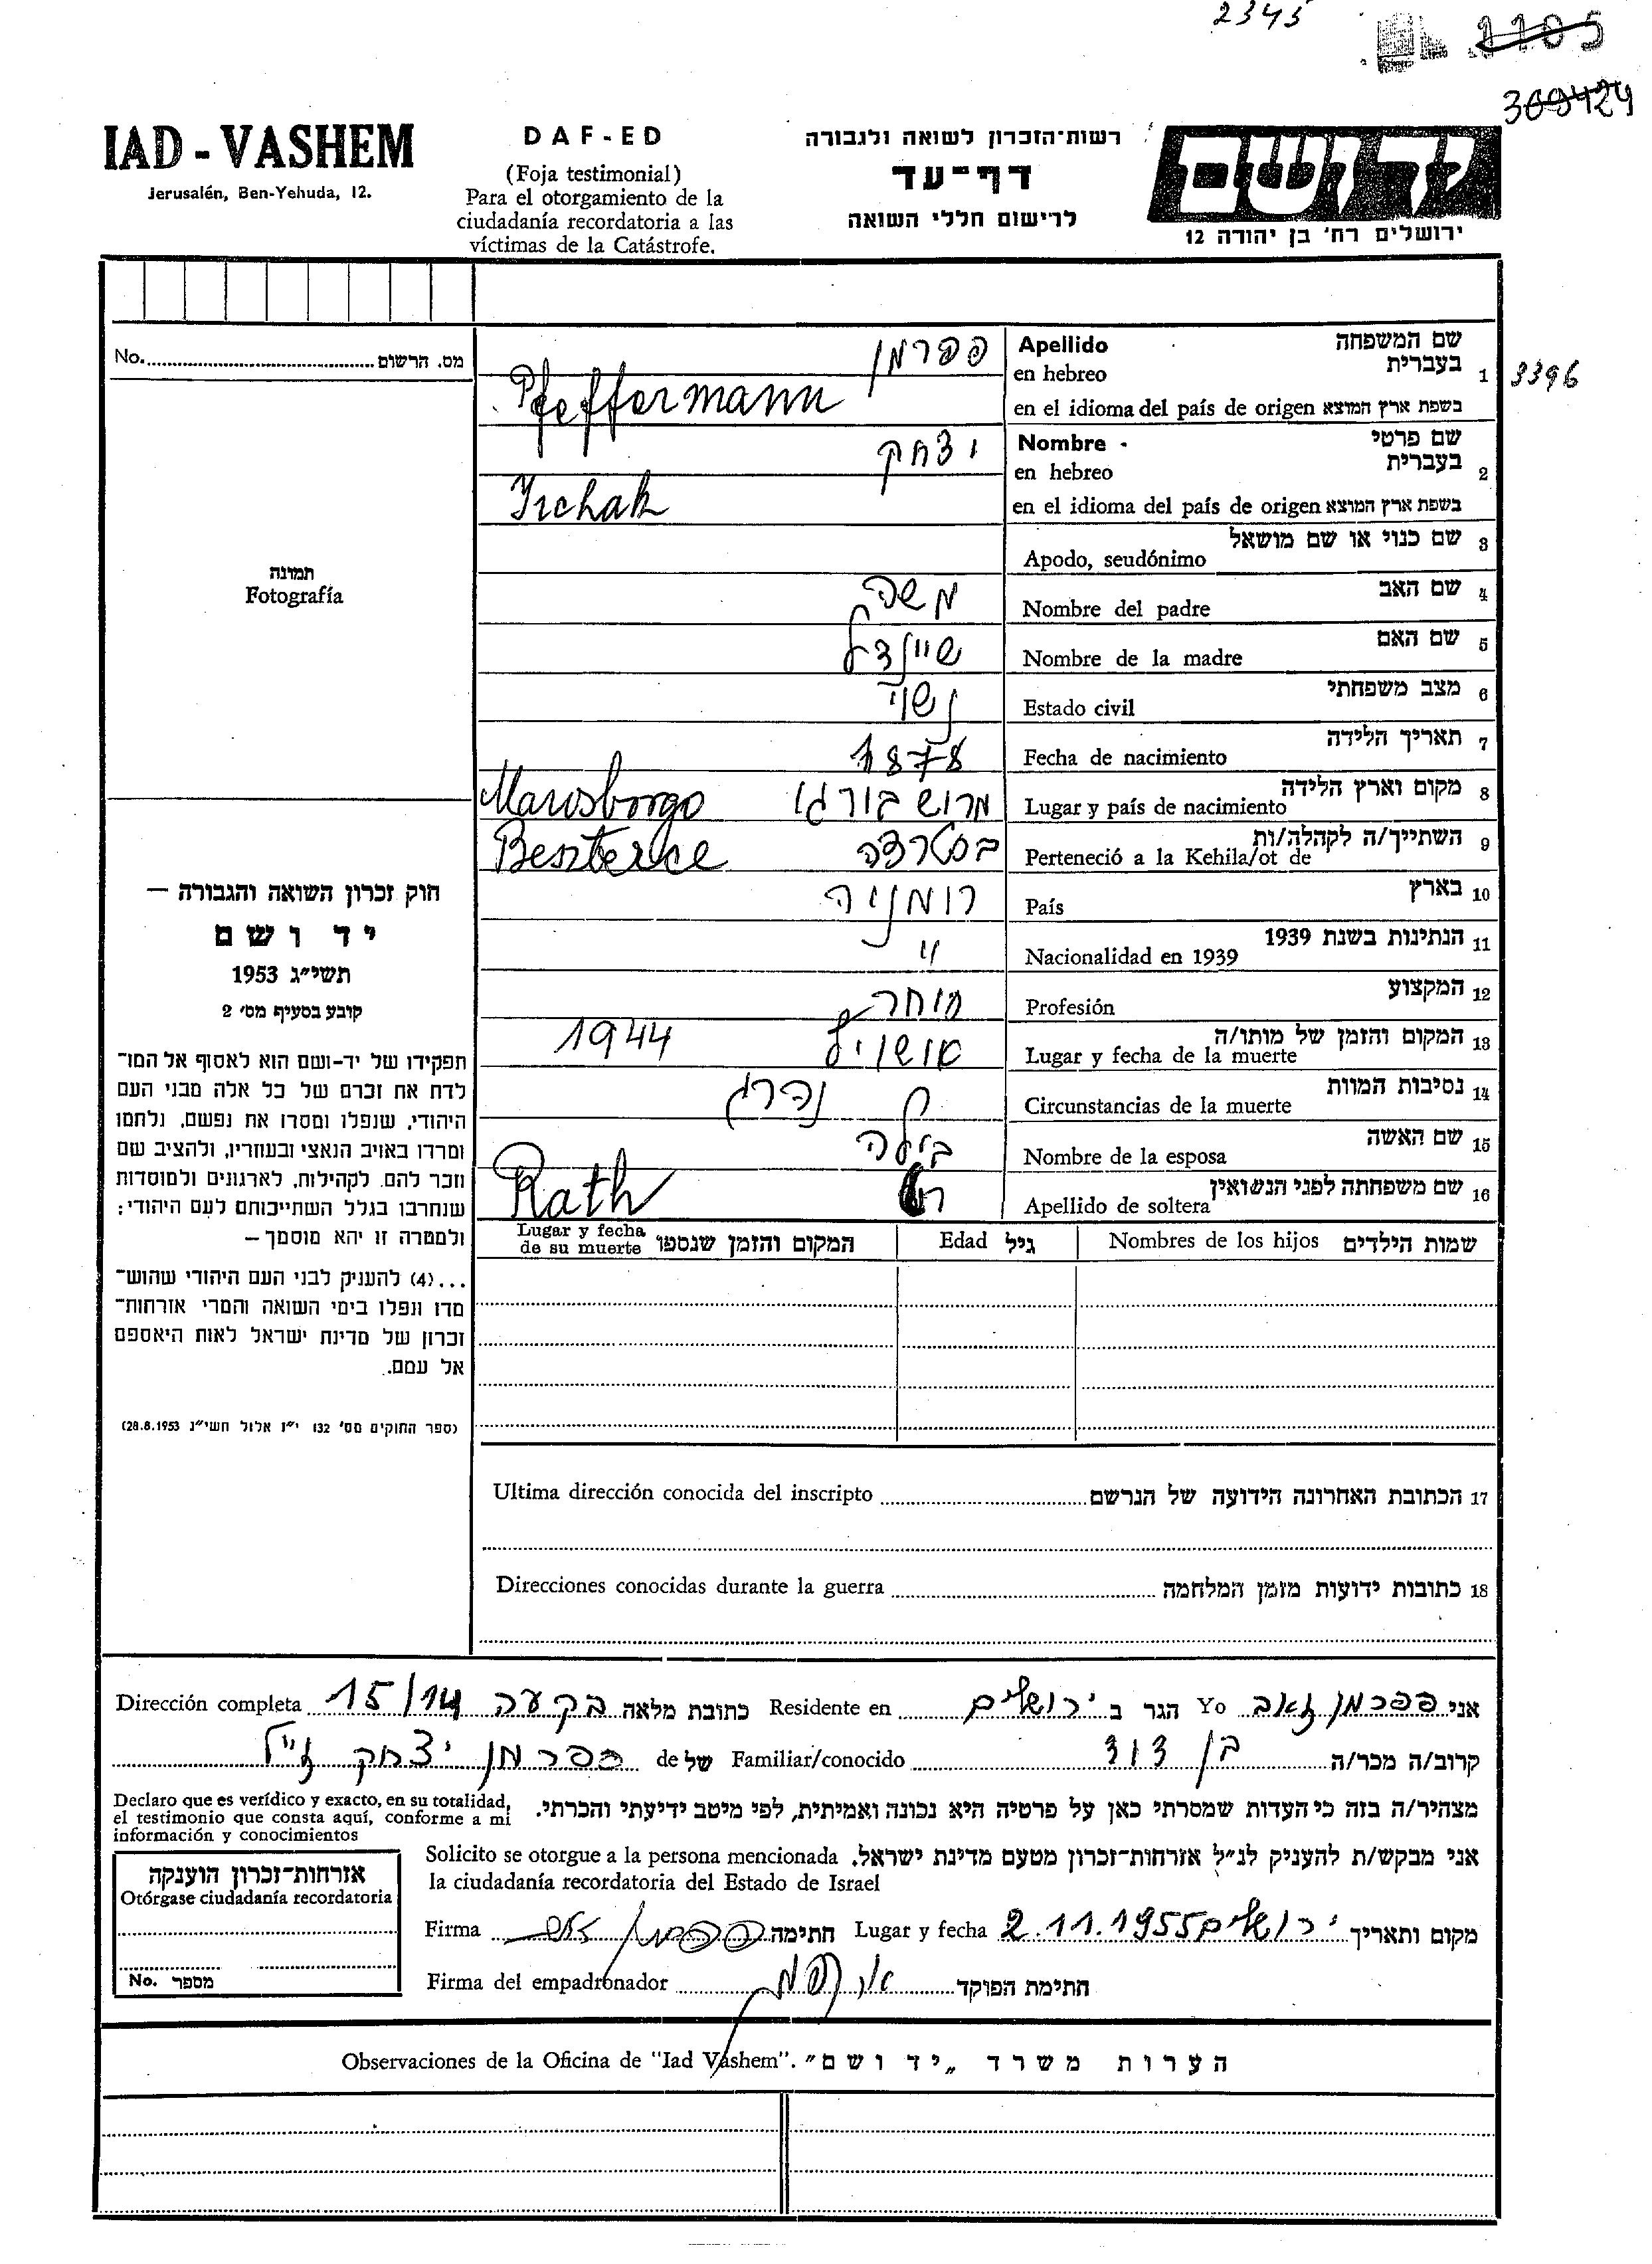 2345
1105
369424
IAD - VASHEM
Jerusalén, Ben-Yehuda, 12.
DAF-ED
(Foja testimonial)
Para el otorgamiento de la
ciudadanía recordatoria a las
víctimas de la Catástrofe.
רשות־הזכרון לשואה ולגבורה
דף־עד
לרישום חללי השואה
יד ושם
ירושלים רח' בן יהודה 12
No. מס. הרשום
תמונה
Fotografía
שם המשפחה
Apellido
פפרמן
בעברית 1
en hebreo
3396
Pfeffermann
en el idioma del país de origen בשפת ארץ המוצא
שם פרטי
Nombre
יצחק
בעברית 2
en hebreo
Izchak
en el idioma del país de origen בשפת ארץ המוצא
שם כנוי או שם מושאל 3
Apodo, seudónimo
שם האב 4
Nombre del padre
משה
שם האם 5
Nombre de la madre
שיינדל
מצב משפחתי 6
Estado civil
נשוי
תאריך הלידה 7
Fecha de nacimiento
1878
מקום וארץ הלידה 8
Lugar y país de nacimiento
מרוש בורגו Marosborgo
השתייך/ה לקהלה/ות 9
Perteneció a la Kehila/ot de
בסטרצה Beszterce
בארץ 10
País
רומניה
הנתינות בשנת 1939 11
Nacionalidad en 1939
"
המקצוע 12
Profesión
סוחר
המקום והזמן של מותו/ה 13
Lugar y fecha de la muerte
1944
נסיבות המוות 14
Circunstancias de la muerte
נהרג
שם האשה 15
Nombre de la esposa
ביילה
שם משפחתה לפני הנשואין 16
Apellido de soltera
Rath
שמות הילדים Nombres de los hijos
גיל Edad
המקום והזמן שנספו Lugar y fecha
de su muerte
חוק זכרון השואה והגבורה —
יד ושם
תשי״ג 1953
קובע בסעיף מס' 2
תפקידו של יד-ושם הוא לאסוף אל המו־
לדת את זכרם של כל אלה מבני העם
היהודי, שנפלו ומסרו את נפשם, נלחמו
ומרדו באויב הנאצי ובעוזריו, ולהציב שם
וזכר להם. לקהילות, לארגונים ולמוסדות
שנחרבו בגלל השתייכותם לעם היהודי;
ולמטרה זו יהא מוסמך —
...(4) להעניק לבני העם היהודי שהוש־
מדו ונפלו בימי השואה והמרי אזרחות־
זכרון של מדינת ישראל לאות היאספם
אל עמם.
(ספר החוקים מס' 132 י״ז אלול תשי״ג 28.8.1953)
Ultima dirección conocida del inscripto הכתובת האחרונה הידועה של הנרשם 17
Direcciones conocidas durante la guerra כתובות ידועות מזמן המלחמה 18
אני פפרמן זאב Yo הגר ב ירושלים Residente en כתובת מלאה בקעה 15/14 Dirección completa
קרוב/ה מכר/ה בן דוד Familiar/conocido של de פפרמן יצחק ז״ל
מצהיר/ה בזה כי העדות שמסרתי כאן על פרטיה היא נכונה ואמיתית, לפי מיטב ידיעתי והכרתי.
Declaro que es verídico y exacto, en su totalidad,
el testimonio que consta aquí, conforme a mi
información y conocimientos
אני מבקש/ת להעניק לנ״ל אזרחות־זכרון מטעם מדינת ישראל.
Solicito se otorgue a la persona mencionada
la ciudadanía recordatoria del Estado de Israel
אזרחות־זכרון הוענקה
Otórgase ciudadanía recordatoria
No. מספר
מקום ותאריך ירושלים 2.11.1955 Lugar y fecha חתימה פפרמן זאב Firma
Firma del empadronador חתימת הפוקד
Observaciones de la Oficina de "Iad Vashem". הערות משרד „יד ושם"